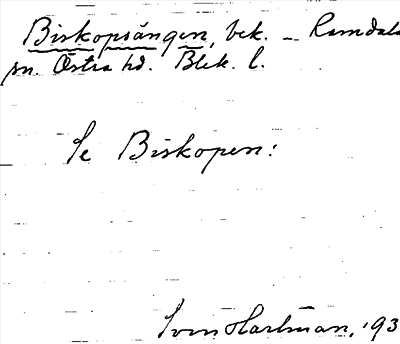 Biskopsängen, bek. — Ramdala
sn. Östra hd. Blek. l.
Se Biskopen:
Sven Hartman, 193